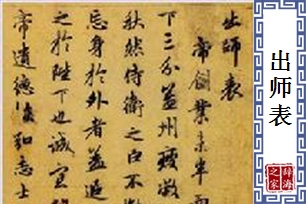 出师表
辞海
之家
出師表
帝創業未半
下三分益州疲敝
秋然侍衛之臣不懈
忘身於外者蓋追
之於陛下也誠宜
帝遺德恢弘志士